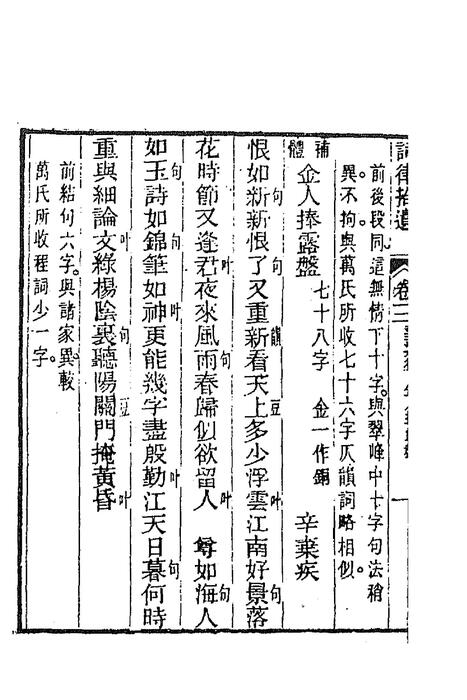 詞律拾遺 卷三
前後段同這無情下十字。與翠峰中十字句法稍
異。不拘。與萬氏所收七十六字仄韻詞略相似。
補體 金人捧露盤 七十八字 金一作銅 辛棄疾
恨如新句新恨了句又重新韻看天上豆多少浮雲叶江南好景句落
花時節又逢君叶夜來風雨句春歸似欲留人叶 尊如海句人
如玉句詩如錦句筆如神叶更能幾字盡殷勤叶江天日暮句何時
重與細論文叶綠楊陰裏句聽陽關豆門掩黃昏叶
前結句六字。與諸家異。較
萬氏所收程詞少一字。